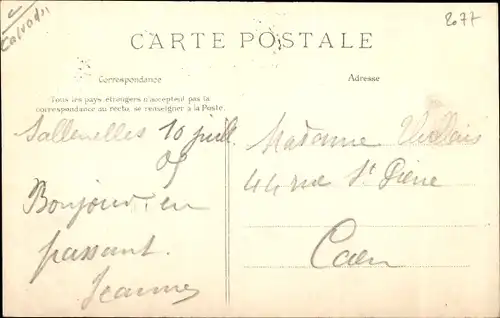 Calvados
2077
CARTE POSTALE
Correspondance
Adresse
Tous les pays étrangers n'acceptent pas la
correspondance au recto, se renseigner à la Poste.
Sallenelles 10 juill.
09
Bonjour en
passant.
Jeanne
Madame
44 rue St Pierre
Caen